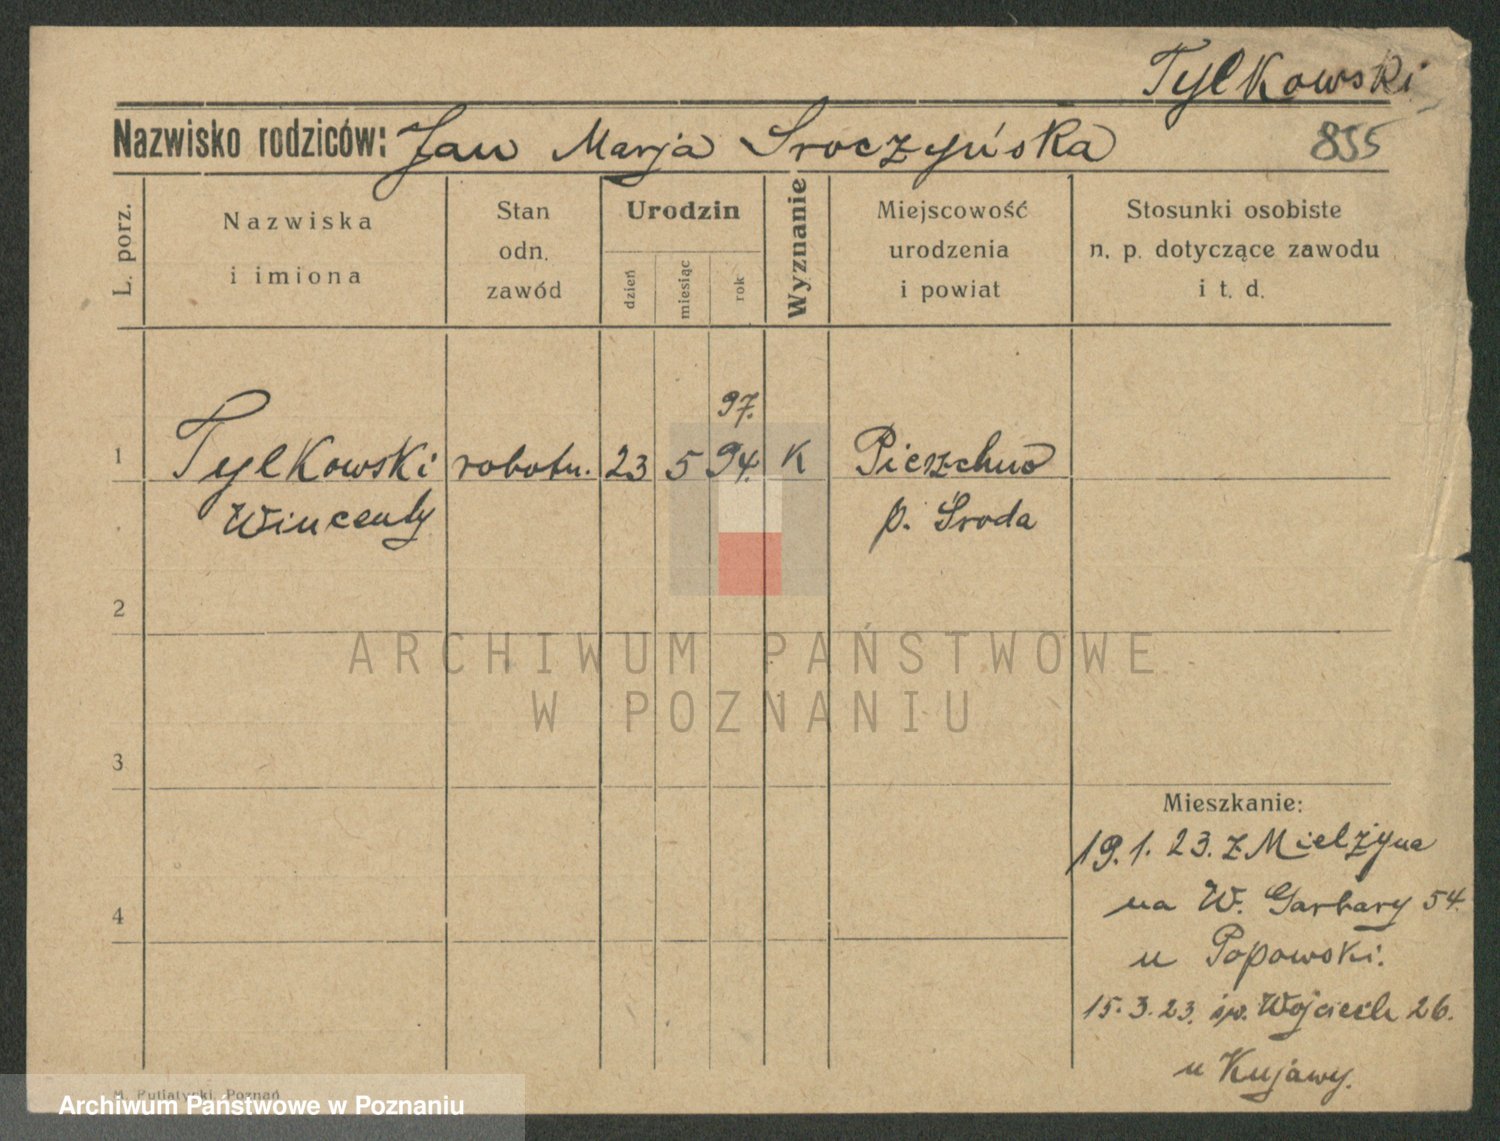 Tylkowski
Nazwisko rodziców: Jan Marja Sroczyńska 855
L. porz.
Nazwiska
i imiona
Stan
odn.
zawód
Urodzin
dzień
miesiąc
rok
Wyznanie
Miejscowość
urodzenia
i powiat
Stosunki osobiste
n. p. dotyczące zawodu
i t. d.
97.
1 Tylkowski robotn. 23 5 94. K Pierzchno
Wincenty p. Środa
2
ARCHIWUM PAŃSTWOWE
W POZNANIU
3
Mieszkanie:
19.1.23. z Mielżyna
4
na W. Garbary 54.
u Popowski.
15.3.23. św. Wojciech 26.
u Kujawy.
M. Putiatycki, Poznań
Archiwum Państwowe w Poznaniu